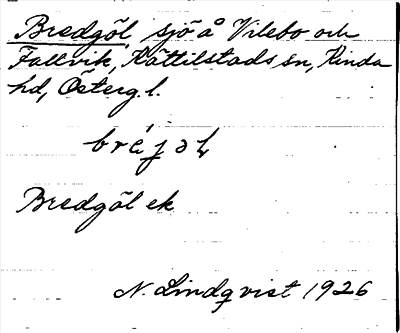 Bredgöl sjö å Vilebo och
Fallvik, Kättilstads sn, Kinda
hd, Österg. l.
Bredgöl ek
N. Lindqvist 1926